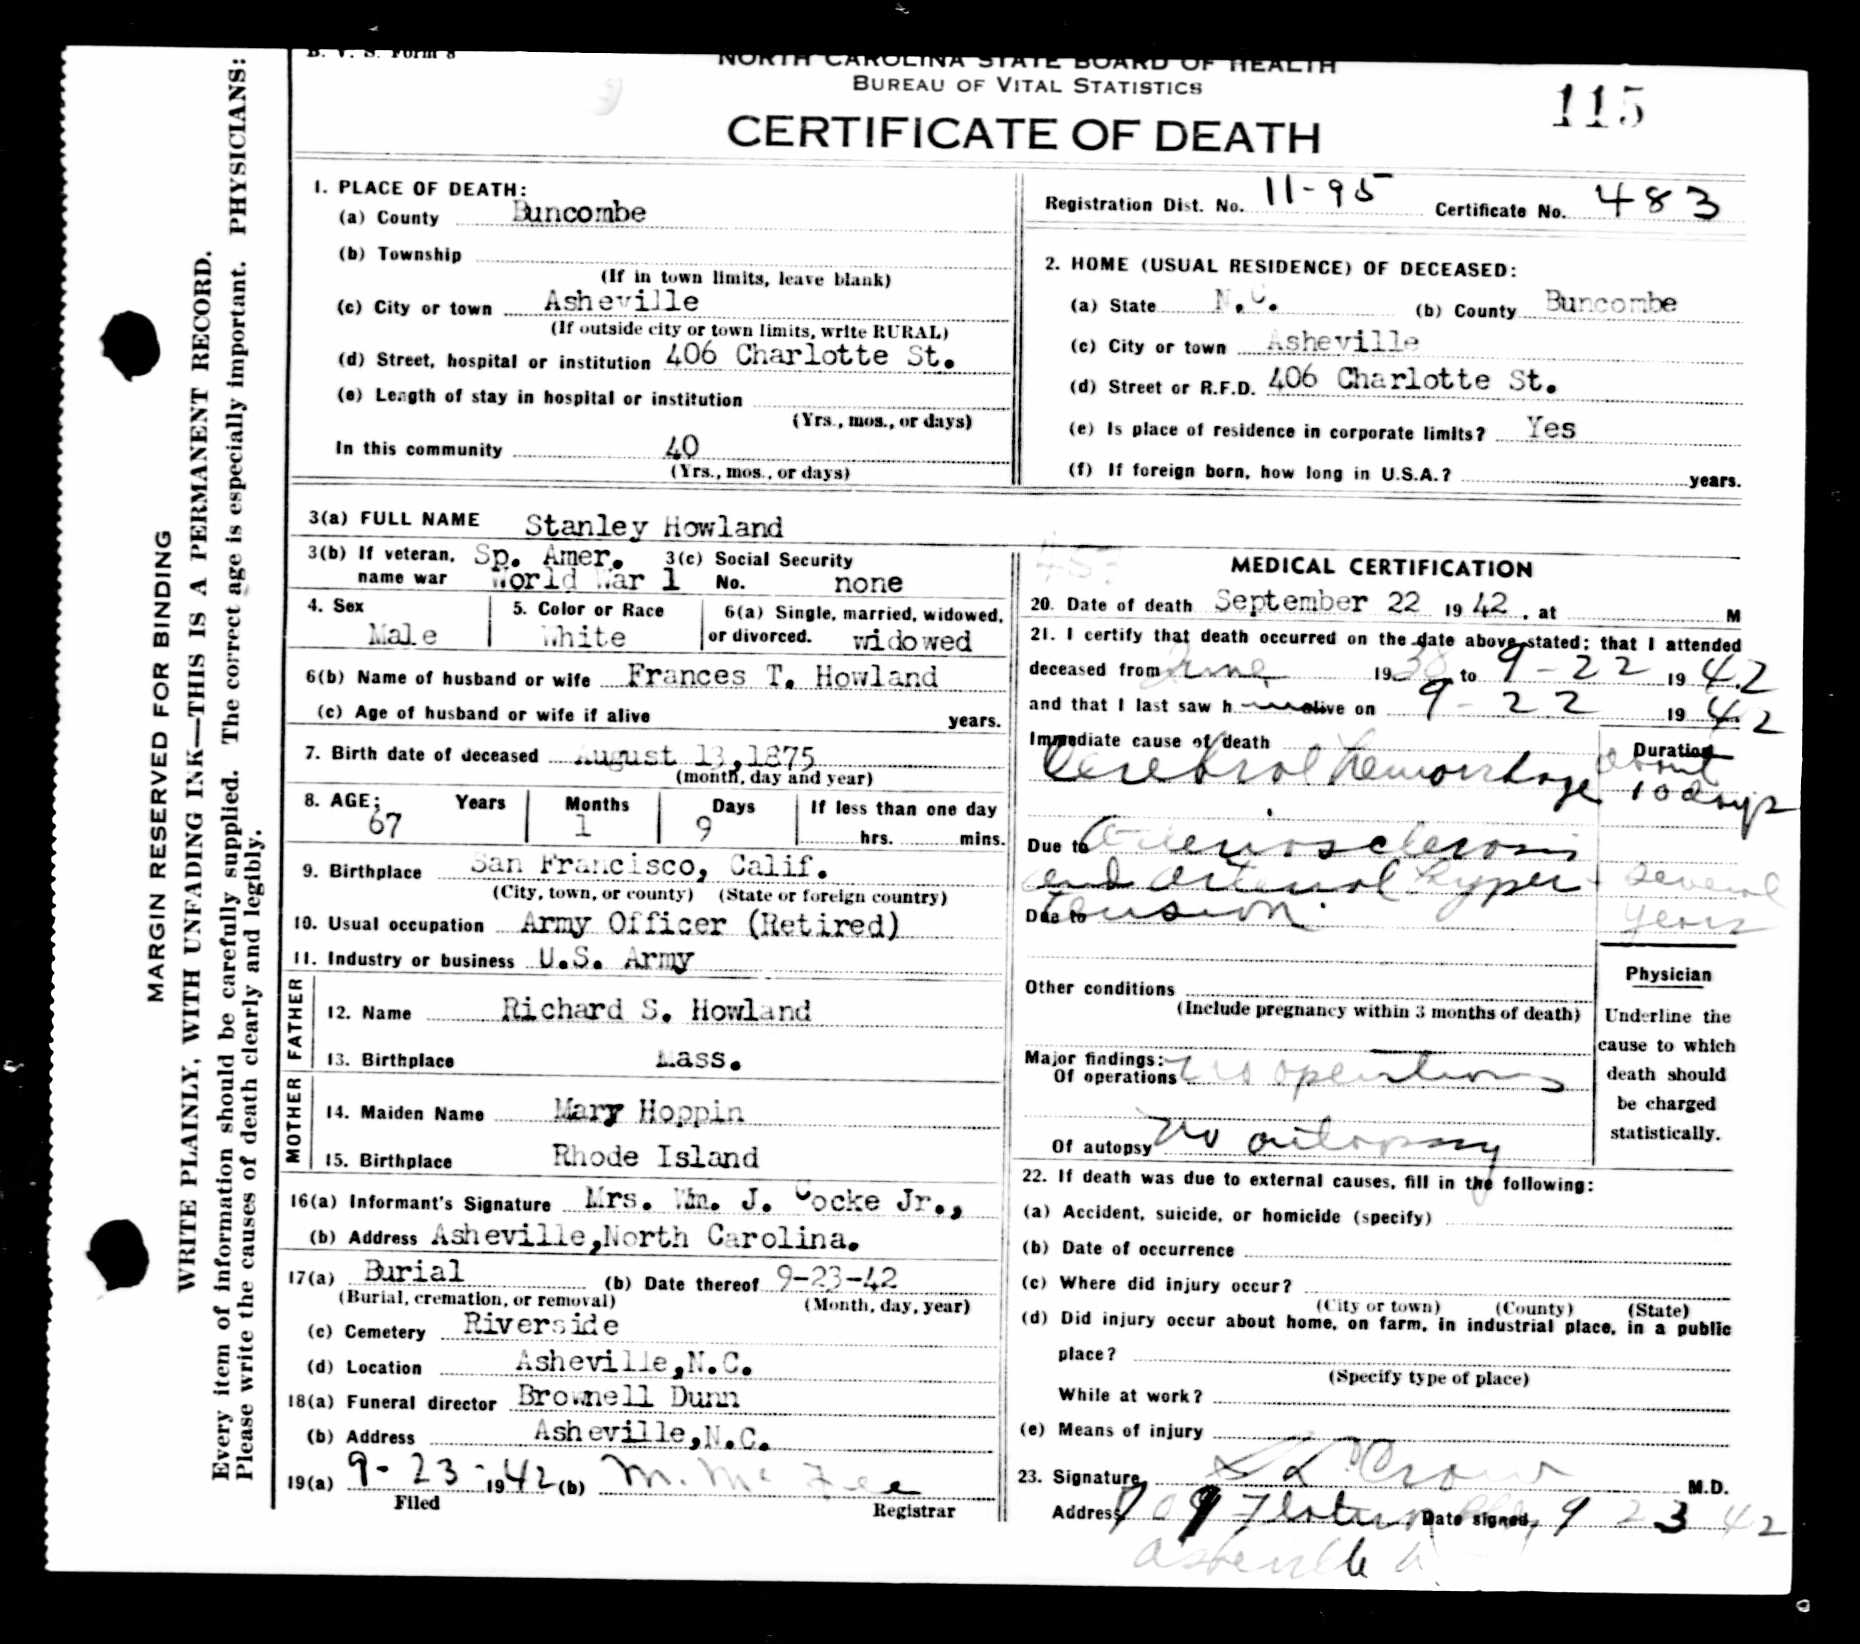 B. V. S. Form 8
NORTH CAROLINA STATE BOARD OF HEALTH
BUREAU OF VITAL STATISTICS
115
CERTIFICATE OF DEATH
MARGIN RESERVED FOR BINDING
WRITE PLAINLY, WITH UNFADING INK—THIS IS A PERMANENT RECORD.
Every item of information should be carefully supplied. The correct age is especially important. PHYSICIANS:
Please write the causes of death clearly and legibly.
1. PLACE OF DEATH:
(a) County Buncombe
(b) Township
(If in town limits, leave blank)
(c) City or town Asheville
(If outside city or town limits, write RURAL)
(d) Street, hospital or institution 406 Charlotte St.
(e) Length of stay in hospital or institution
(Yrs., mos., or days)
In this community 40
(Yrs., mos., or days)
Registration Dist. No. 11-95 Certificate No. 483
2. HOME (USUAL RESIDENCE) OF DECEASED:
(a) State N.C. (b) County Buncombe
(c) City or town Asheville
(d) Street or R.F.D. 406 Charlotte St.
(e) Is place of residence in corporate limits? Yes
(f) If foreign born, how long in U.S.A.? years.
3(a) FULL NAME Stanley Howland
3(b) If veteran, Sp. Amer. 3(c) Social Security
name war World War 1 No. none
4. Sex 5. Color or Race 6(a) Single, married, widowed,
Male White or divorced. widowed
6(b) Name of husband or wife Frances T. Howland
(c) Age of husband or wife if alive years.
7. Birth date of deceased August 13,1875
(month, day and year)
8. AGE: Years Months Days If less than one day
67 1 9 hrs. mins.
9. Birthplace San Francisco, Calif.
(City, town, or county) (State or foreign country)
10. Usual occupation Army Officer (Retired)
11. Industry or business U.S. Army
FATHER
12. Name Richard S. Howland
13. Birthplace Mass.
MOTHER
14. Maiden Name Mary Hoppin
15. Birthplace Rhode Island
16(a) Informant's Signature Mrs. Wm. J. Cocke Jr.,
(b) Address Asheville,North Carolina.
17(a) Burial (b) Date thereof 9-23-42
(Burial, cremation, or removal) (Month, day, year)
(c) Cemetery Riverside
(d) Location Asheville,N.C.
18(a) Funeral director Brownell Dunn
(b) Address Asheville,N.C.
19(a) 9-23-1942 (b) M. McFee
Filed Registrar
MEDICAL CERTIFICATION
20. Date of death September 22 1942, at M
21. I certify that death occurred on the date above stated; that I attended
deceased from June 1938 to 9-22 1942
and that I last saw h alive on 9-22 1942
Immediate cause of death Duration
Cerebral hemorrhage about
10 days
Due to Arteriosclerosis
and arterial hyper- several
Due to tension. years
Other conditions
(Include pregnancy within 3 months of death)
Physician
Underline the
cause to which
death should
be charged
statistically.
Major findings:
Of operations no operations
Of autopsy no autopsy
22. If death was due to external causes, fill in the following:
(a) Accident, suicide, or homicide (specify)
(b) Date of occurrence
(c) Where did injury occur?
(City or town) (County) (State)
(d) Did injury occur about home, on farm, in industrial place, in a public
place?
(Specify type of place)
While at work?
(e) Means of injury
23. Signature S L Crow M.D.
Address Date signed 9 23 42
Asheville